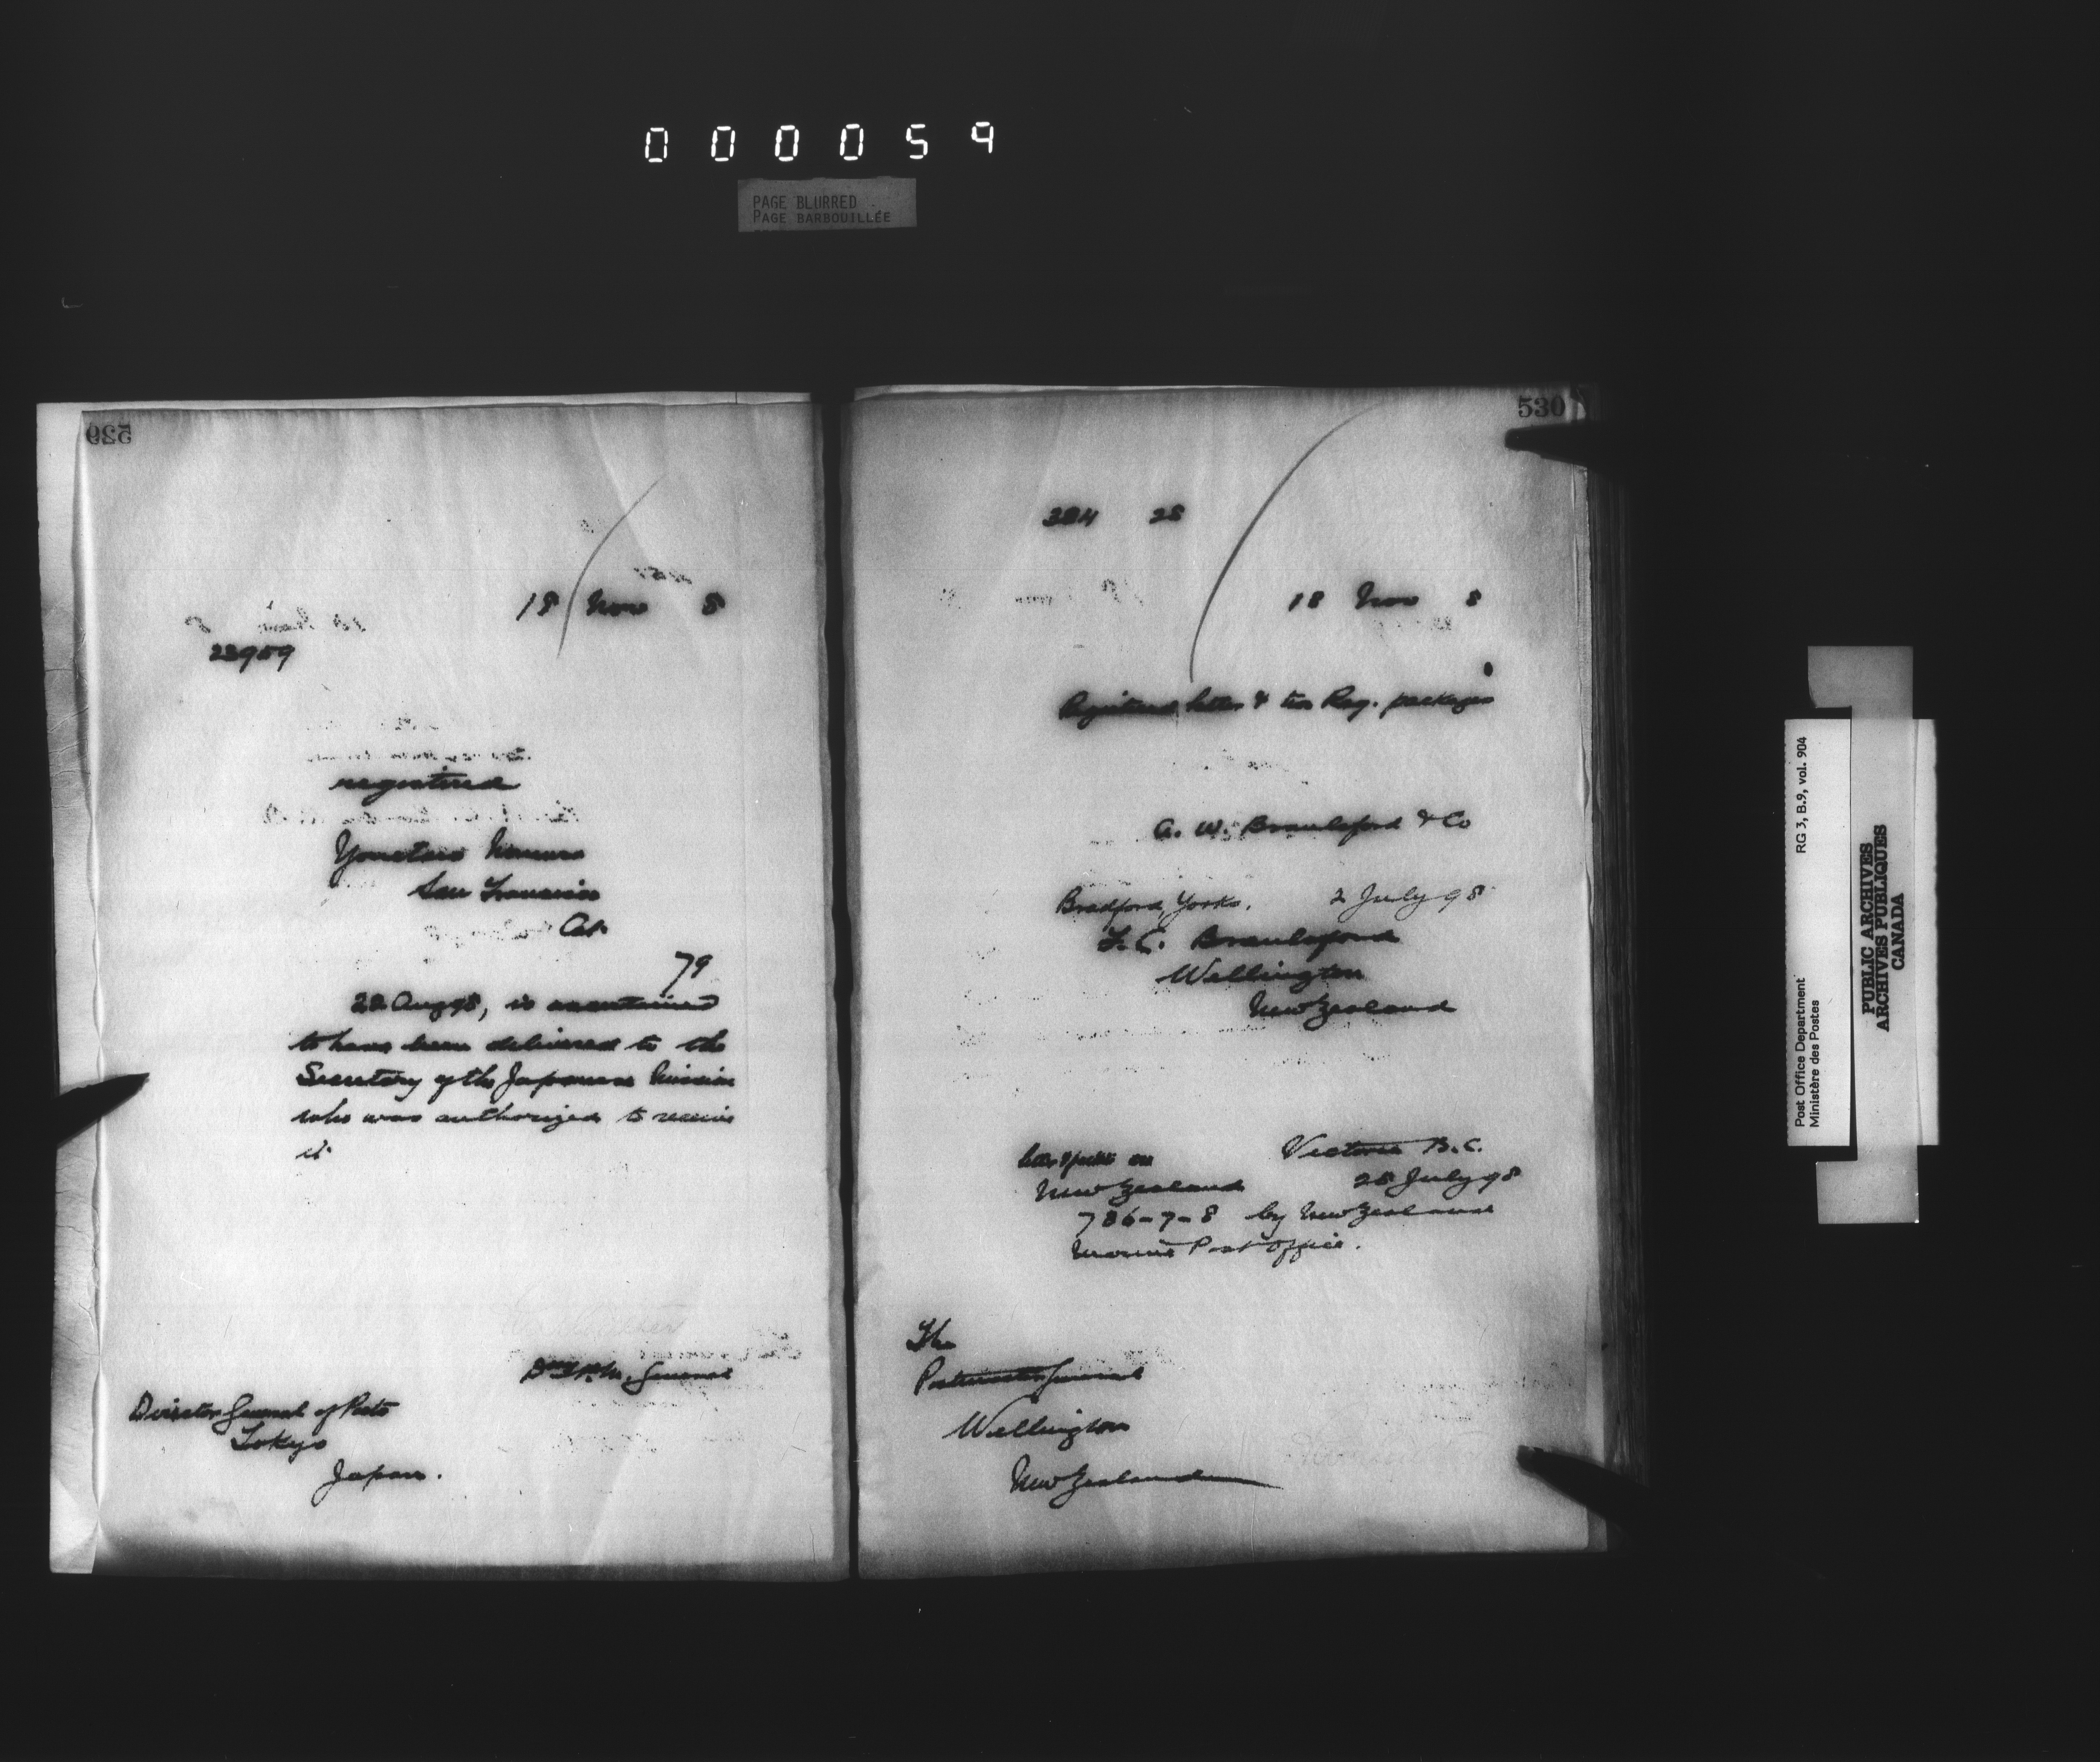 000059
PAGE BLURRED
PAGE BARBOUILLÉE
529
18 Nov 8
23959
registered
Yonetaro
San Francisco
Cal.
79
22 Aug 98, is ascertained
to have been delivered to the
Secretary of the Japanese Mission
who was authorized to receive
it
P.M. General
Director General of Posts
Tokyo
Japan.
530
384 28
18 Nov 8
Registered letter & two Reg. packages
A. W. & Co
Bradford, Yorks. 2 July 98
Wellington
New Zealand
Victoria B.C.
New Zealand 28 July 98
786-7-8 by New Zealand
Marine Post Office.
The
Postmaster General
Wellington
New Zealand
Post Office Department RG 3, B.9, vol. 904
Ministère des Postes
PUBLIC ARCHIVES
ARCHIVES PUBLIQUES
CANADA